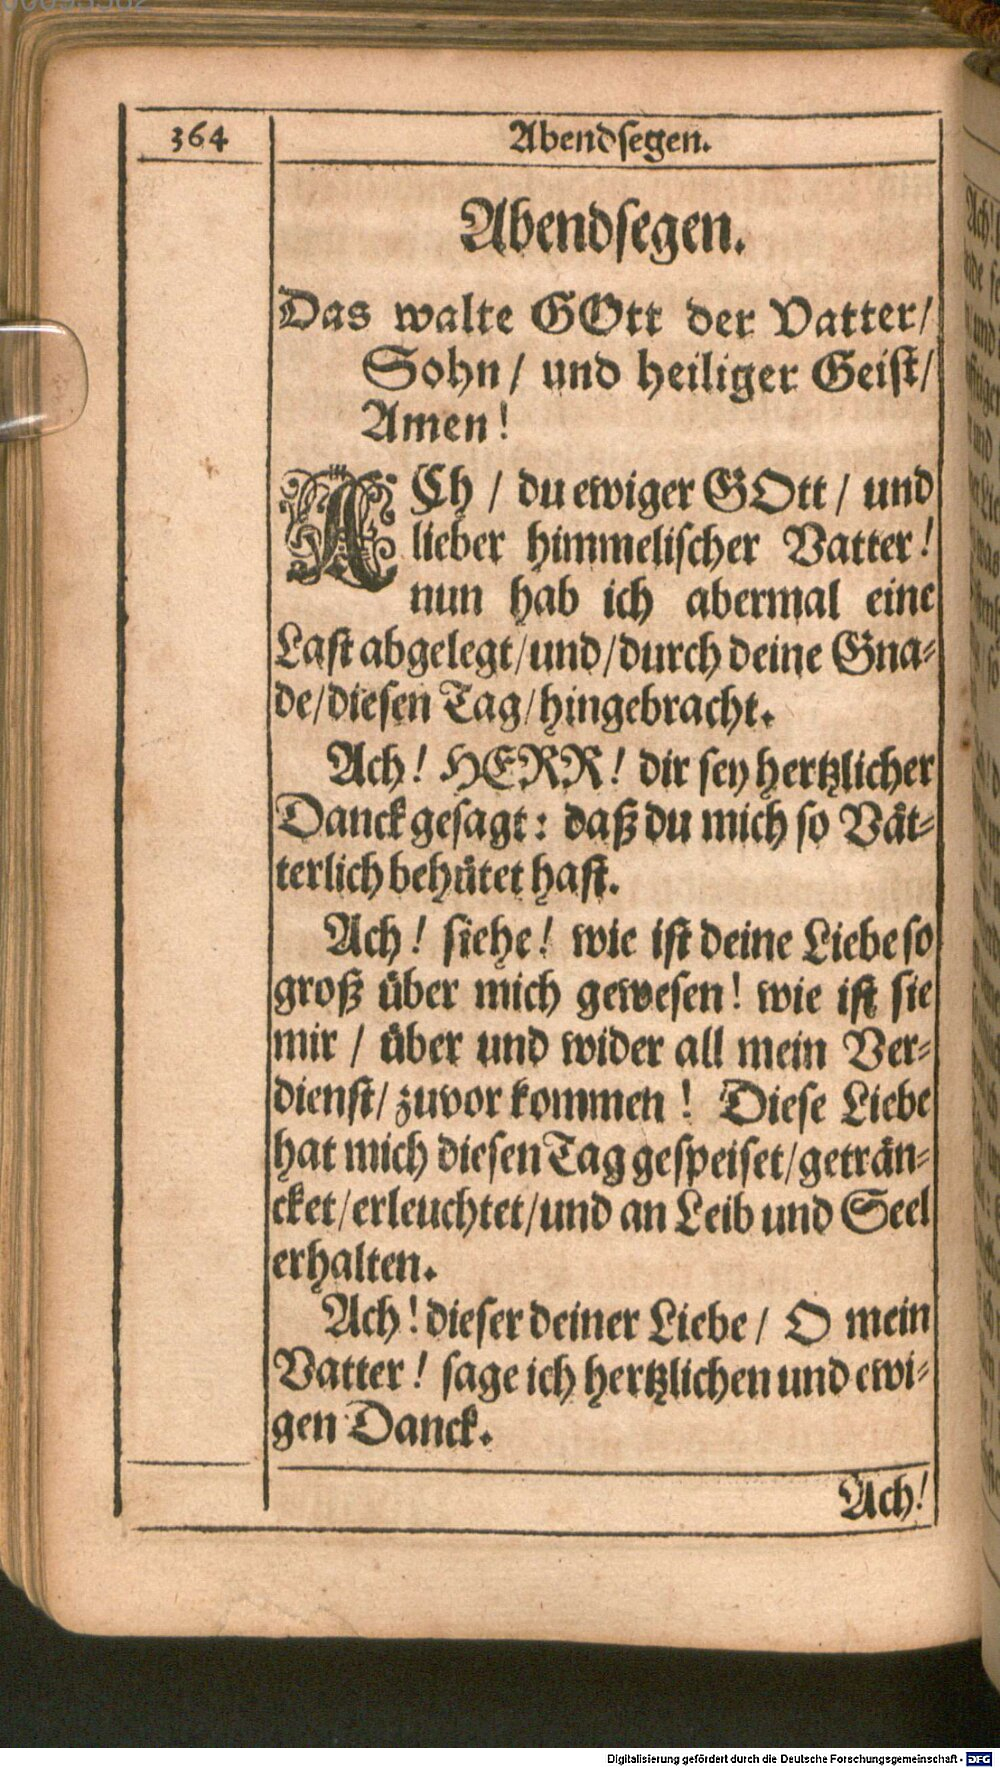 364
Abendsegen.
Abendsegen.
Das walte GOtt der Vatter/
Sohn / und heiliger Geist/
Amen!
ACh / du ewiger GOtt / und
lieber himmelischer Vatter!
nun hab ich abermal eine
Last abgelegt/und/durch deine Gna-
de/diesen Tag/hingebracht.
Ach! HERR! dir sey hertzlicher
Danck gesagt: daß du mich so Vät-
terlich behütet hast.
Ach! siehe! wie ist deine Liebe so
groß über mich gewesen! wie ist sie
mir / über und wider all mein Ver-
dienst/ zuvor kommen! Diese Liebe
hat mich diesen Tag gespeiset/geträn-
cket/erleuchtet/und an Leib und Seel
erhalten.
Ach! dieser deiner Liebe / O mein
Vatter! sage ich hertzlichen und ewi-
gen Danck.
Ach!
Digitalisierung gefördert durch die Deutsche Forschungsgemeinschaft - DFG